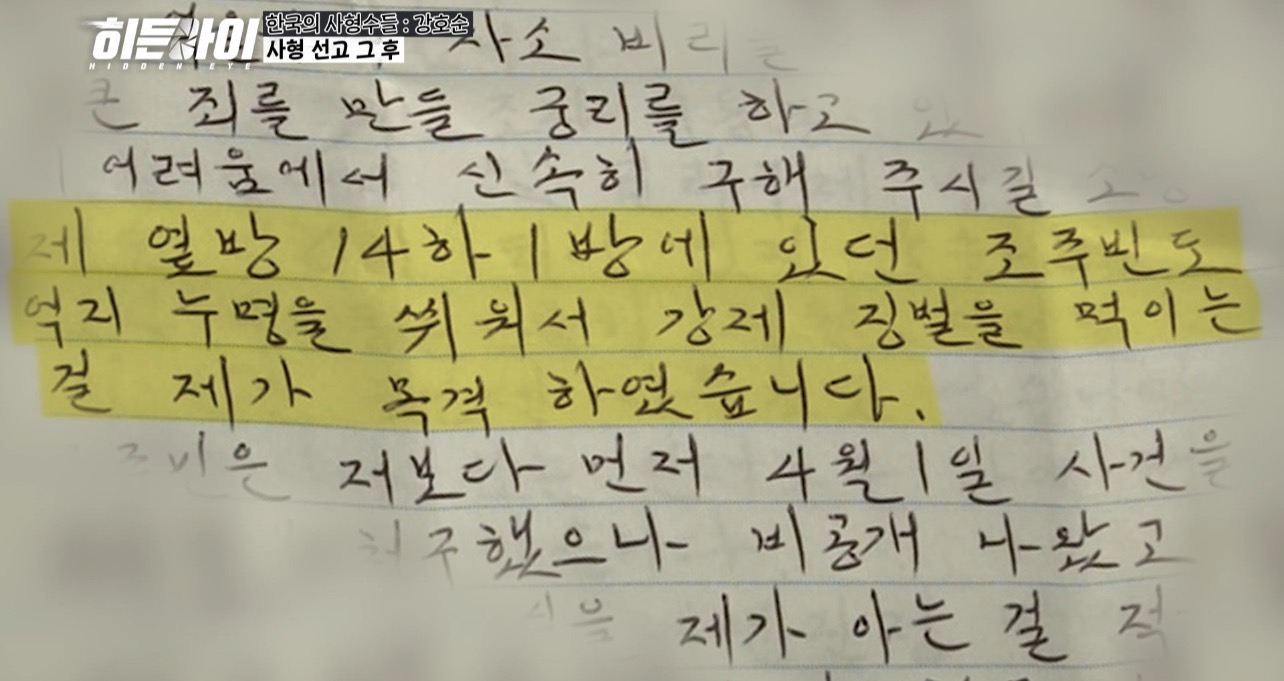 히든아이
HIDDEN EYE
한국의 사형수들 : 강호순
사형 선고 그 후
사소 비리를
큰 죄를 만들 궁리를 하고 있
어려움에서 신속히 구해 주시길 소
제 옆방 14하1방에 있던 조주빈도
억지 누명을 쒸워서 강제 징벌을 먹이는
걸 제가 목격 하였습니다.
주빈은 저보다 먼저 4월 1일 사건을
청구했으나 비공개 나왔고
을 제가 아는 걸 적